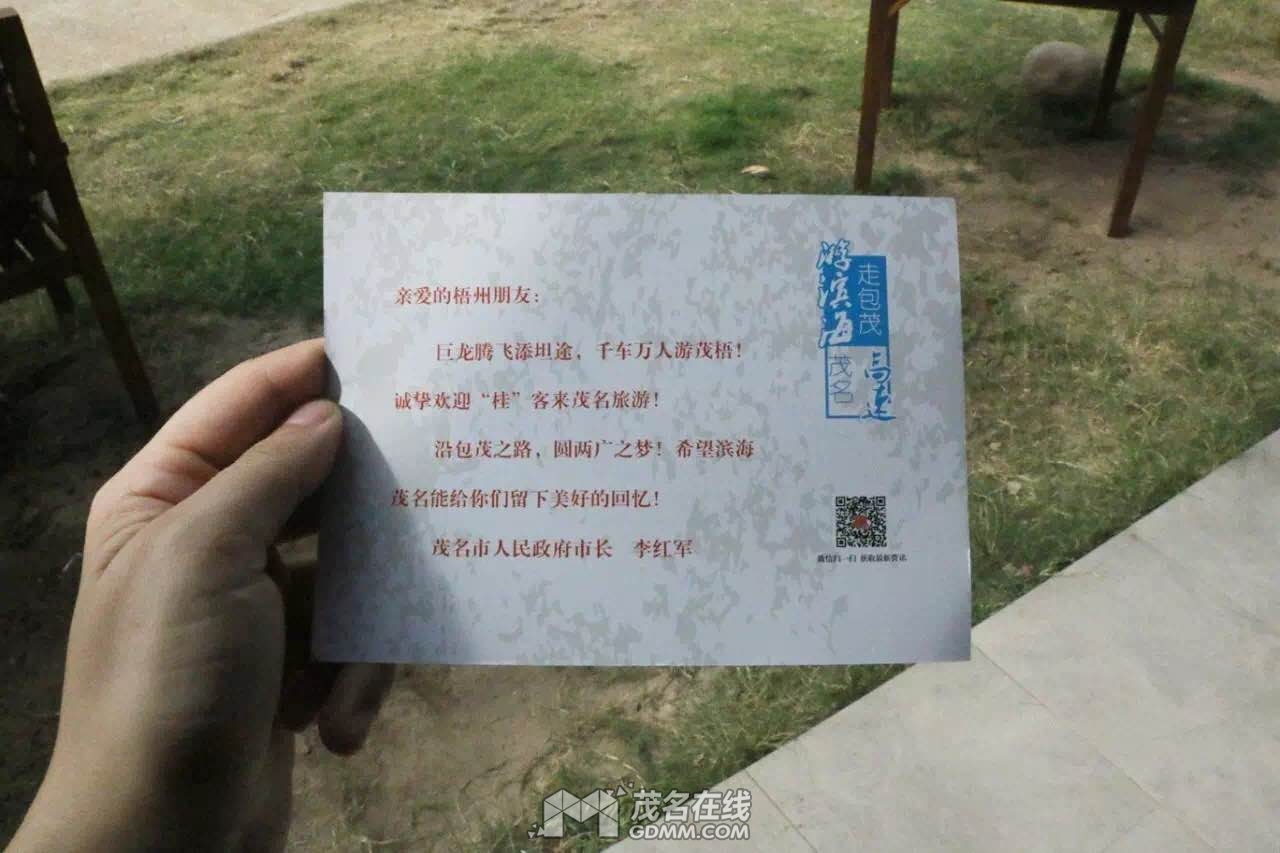 亲爱的梧州朋友：
巨龙腾飞添坦途，千车万人游茂梧！
诚挚欢迎“桂”客来茂名旅游！
沿包茂之路，圆两广之梦！希望滨海
茂名能给你们留下美好的回忆！
茂名市人民政府市长 李红军
走包茂
高速
游滨海
茂名
微信扫一扫 获取最新资讯
茂名在线
GDMM.COM